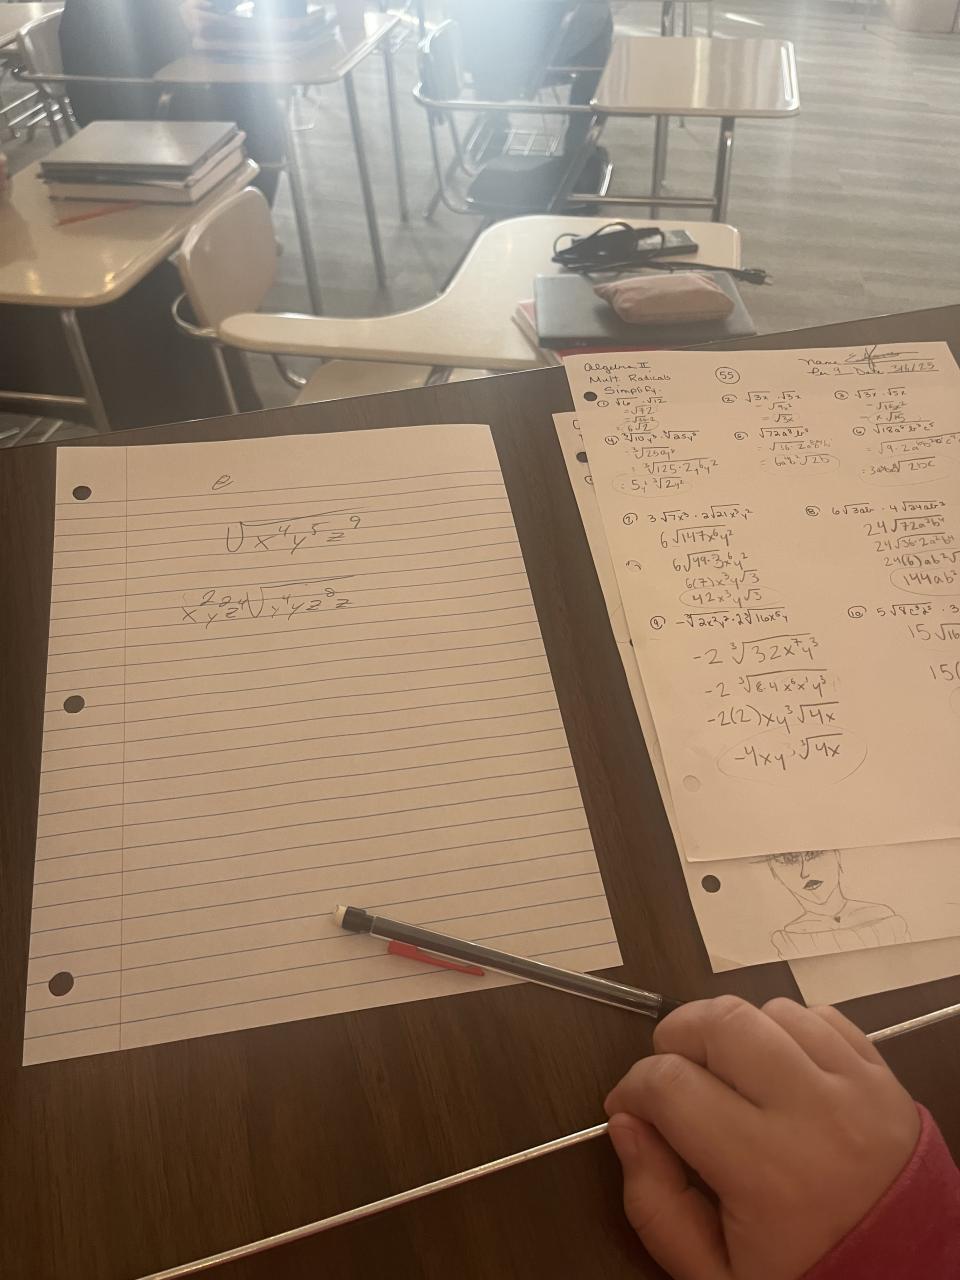 e
√x⁴y⁵z⁹
x²y²z⁴√y⁴yz⁸z
Algebra II
Mult. Radicals
Simplify.
55
Name
Per 9 Date 3/6/25
① √6 · √12
= √72
= 6√2
② √3x · √3x
= √9x²
③ √3x · √5x
= √15x²
= x√15
④ ∛10y⁵ · ∛25y³
∛250y⁸
= ∛125·2y⁶y²
= 5y²∛2y²
⑤ √72a⁸b⁵
= 6a⁴b²√2b
⑥ √18a⁶b³c⁵
⑦ 3√7x³ · 2√21x³y²
6√147x⁶y²
6√49·3x⁶y²
6(7)x³y√3
42x³y√3
⑧ 6√3ab · 4√24ab³
24√72a²b⁴
24√36·2a²b⁴
24(6)ab²√
144ab²
⑨ -∛2x²y² · 2∛16x⁵y
-2∛32x⁷y³
-2∛8·4x⁶x¹y³
-2(2)xy³√4x
-4xy·∛4x
⑩ 5√8c³d⁵ · 3
15√16
15(